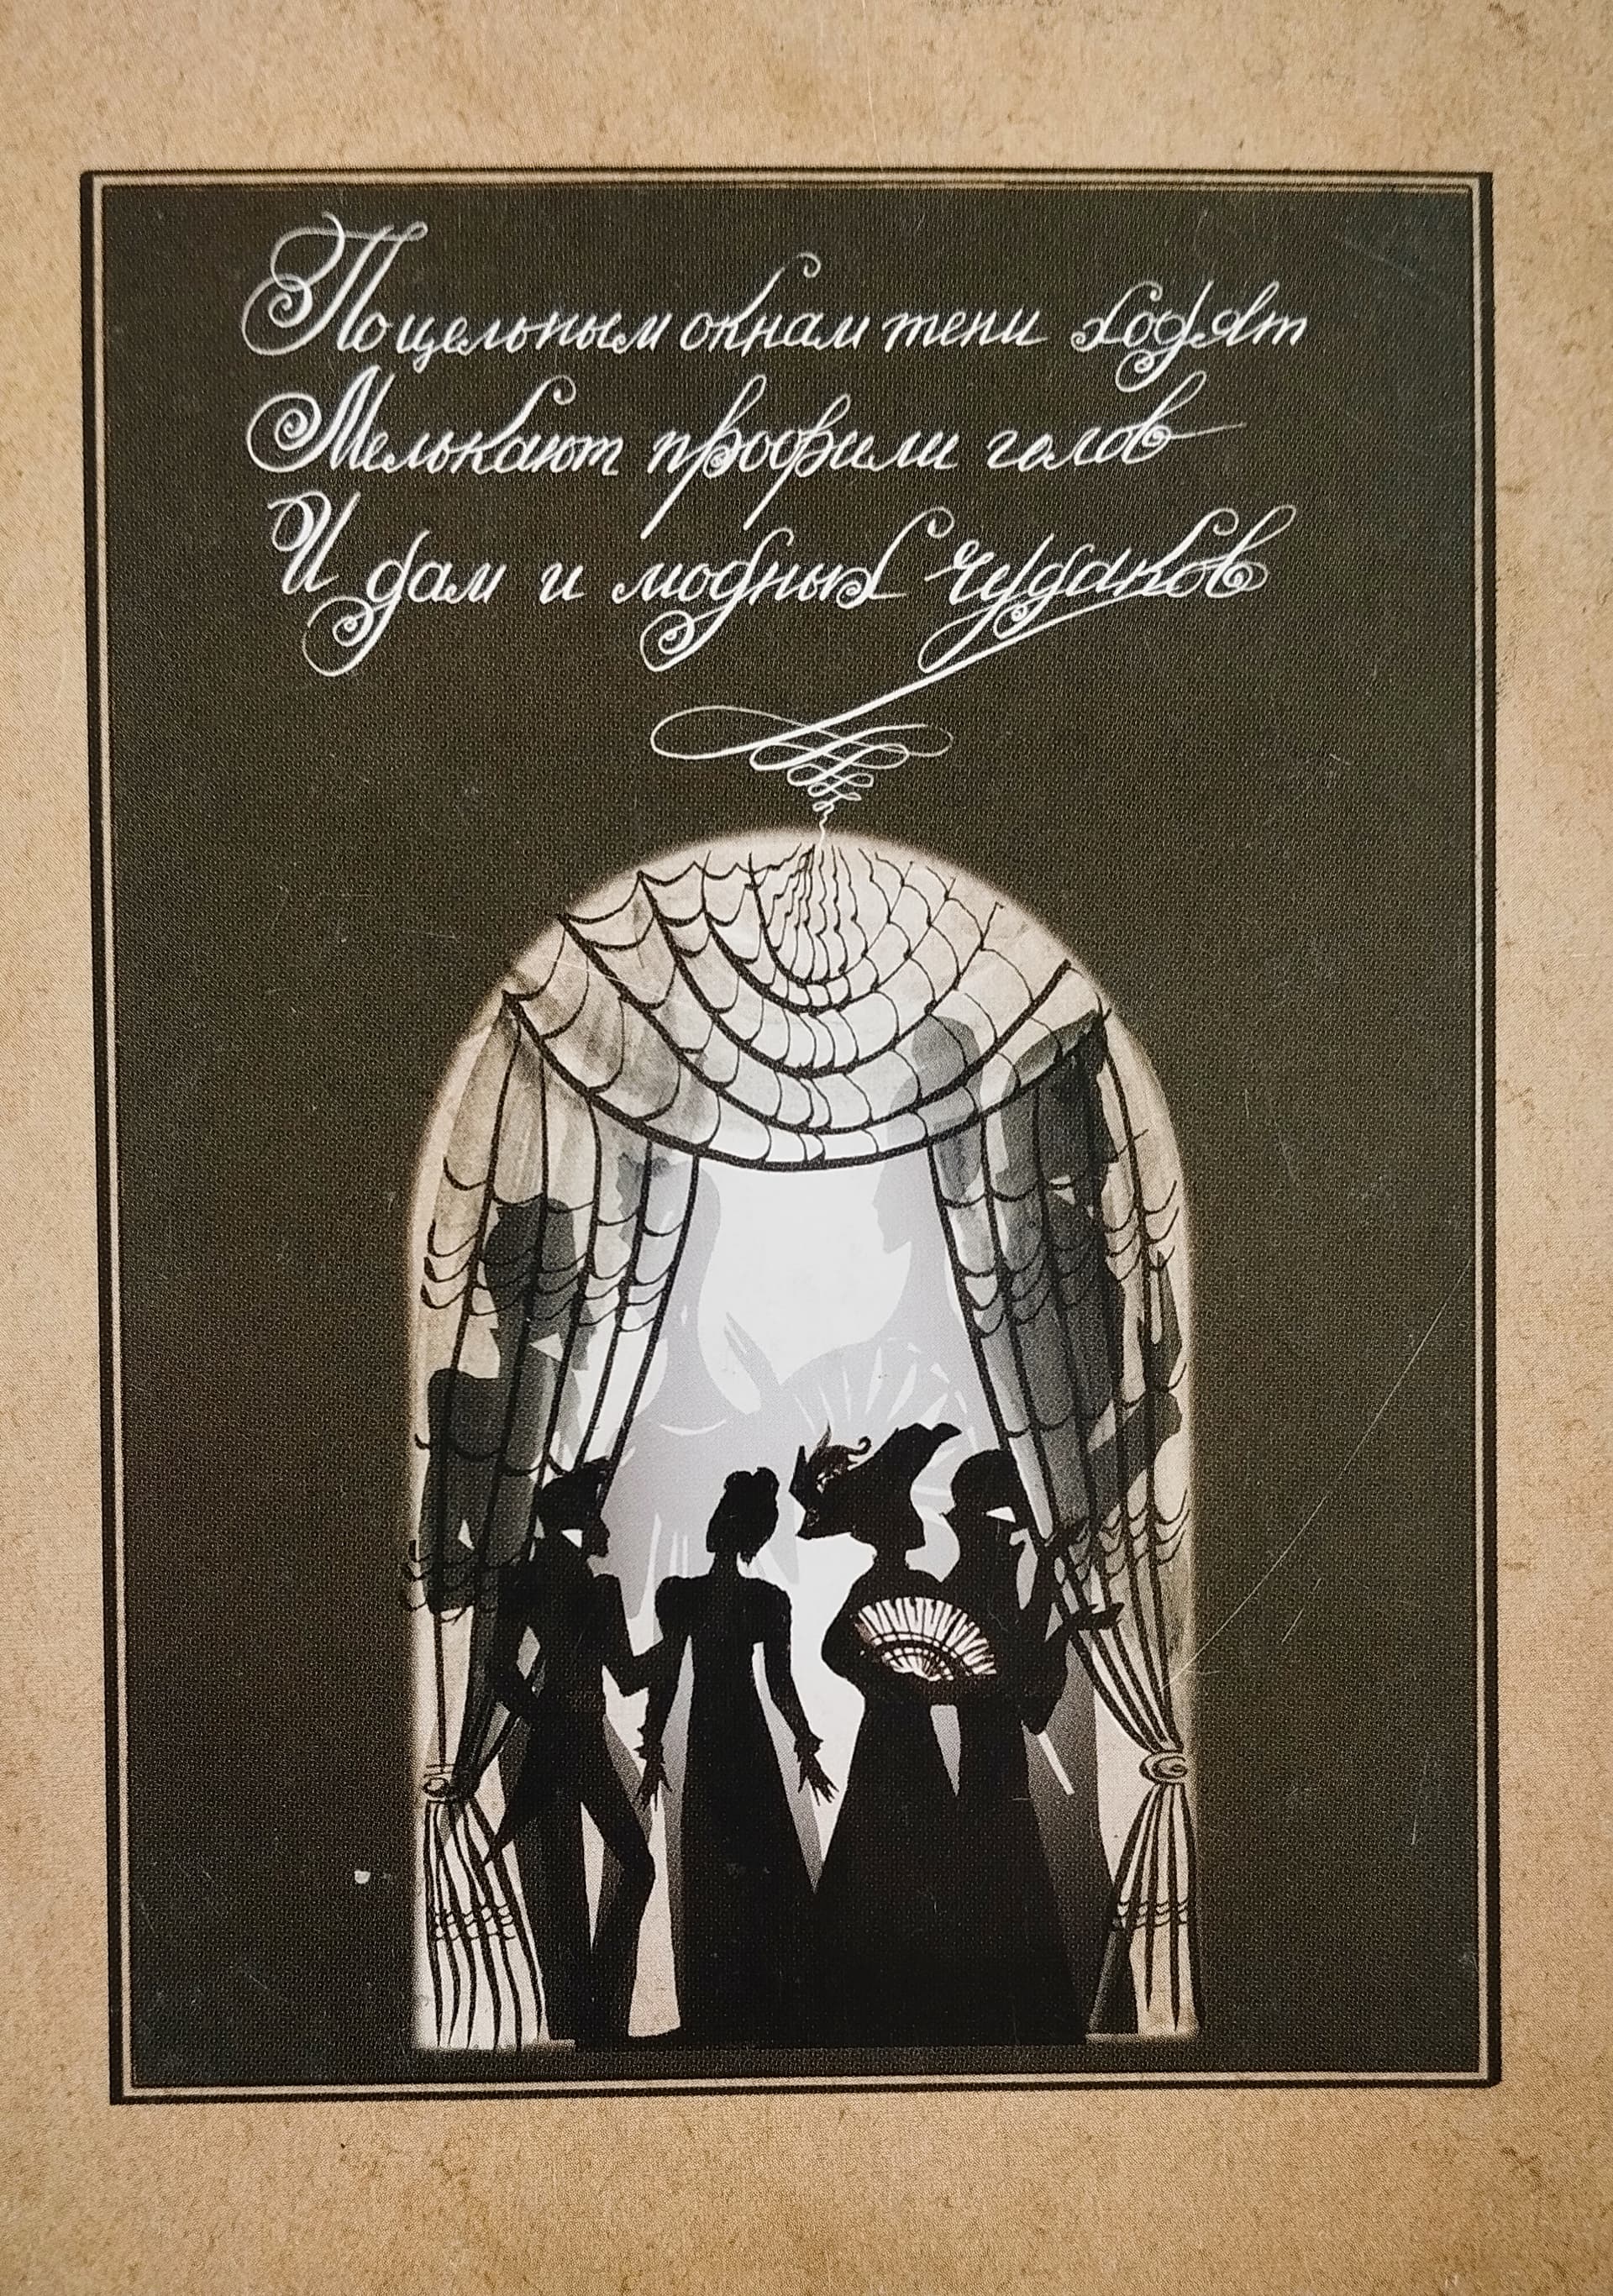 По цельным окнам тени ходят
Мелькают профили голов
И дам и модных чудаков